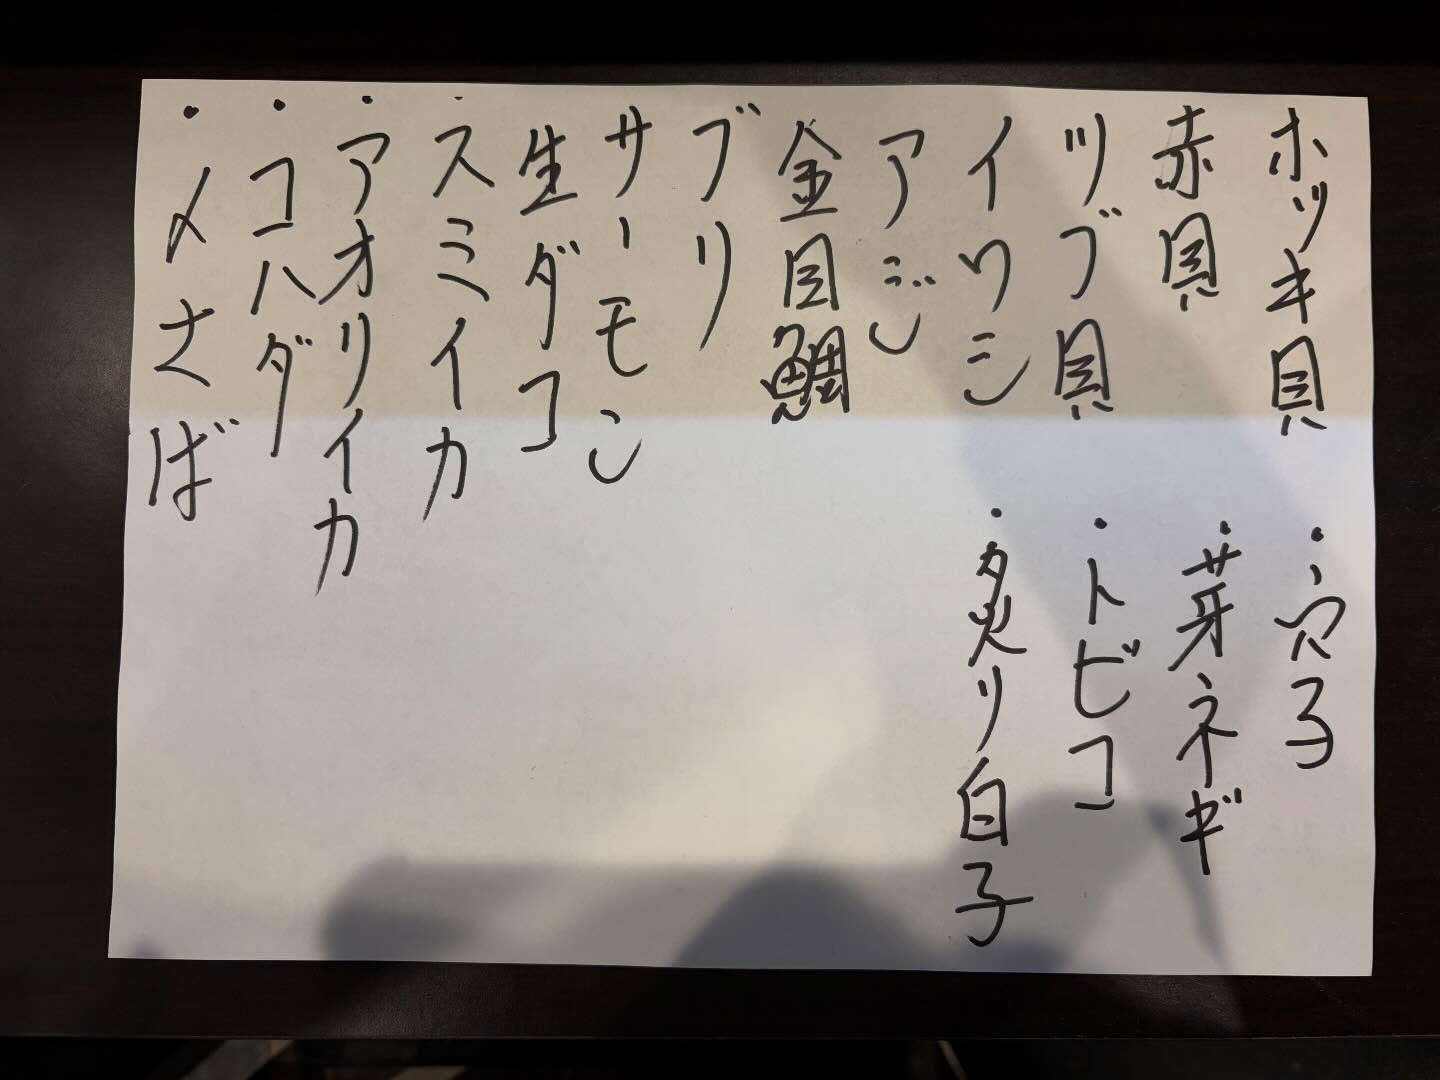 ホッキ貝
赤貝
ツブ貝
イワシ
アジ
金目鯛
ブリ
サーモン
生ダコ
・スミイカ
・アオリイカ
・コハダ
・〆さば
・穴子
・芽ネギ
・トビコ
・炙り白子